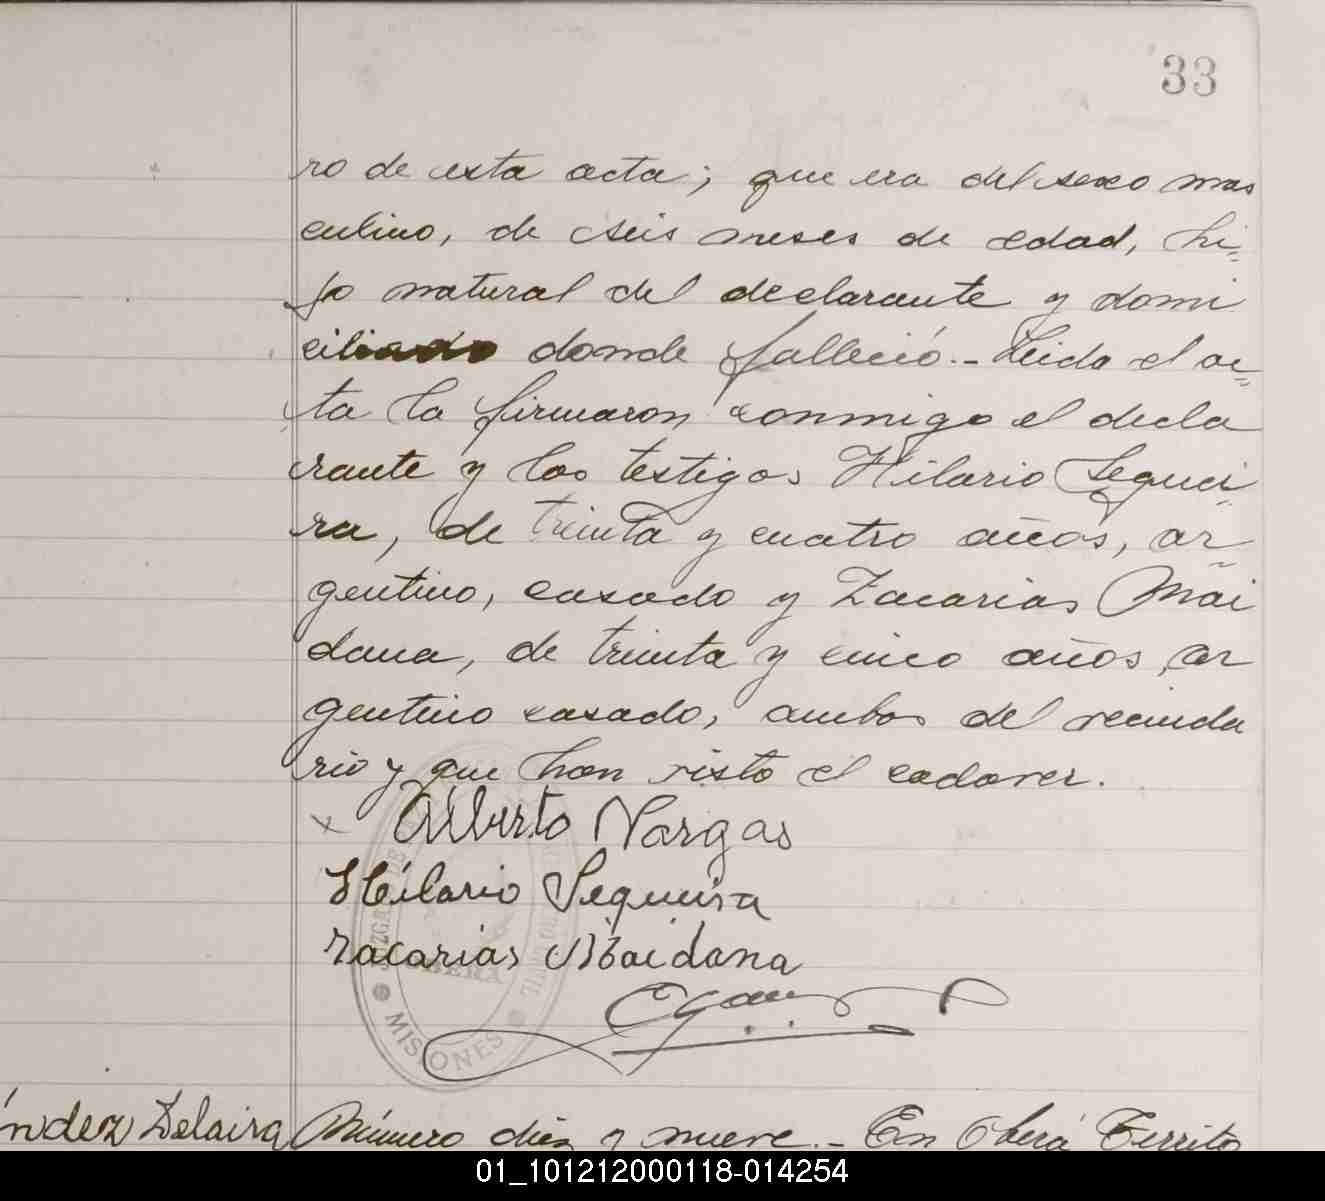 33
ro de esta acta; que era del sexo mas
culino, de seis meses de edad, hi=
jo natural del declarante y domi
ciliado donde falleció.- Leida el ac=
ta la firmaron conmigo el decla
rante y los testigos Hilario Sequei
ra, de treinta y cuatro años, ar=
gentino, casado y Zacarias Mai
dana, de treinta y cinco años, ar
gentino casado, ambos del vecinda
rio y que han visto el cadaver.
x Alberto Vargas
Hilario Sequeira
Zacarias Maidana
JUZGADO DE
OBERA
MISIONES
ández Delaira Número diez y nueve.- En Oberá Territo
01_101212000118-014254